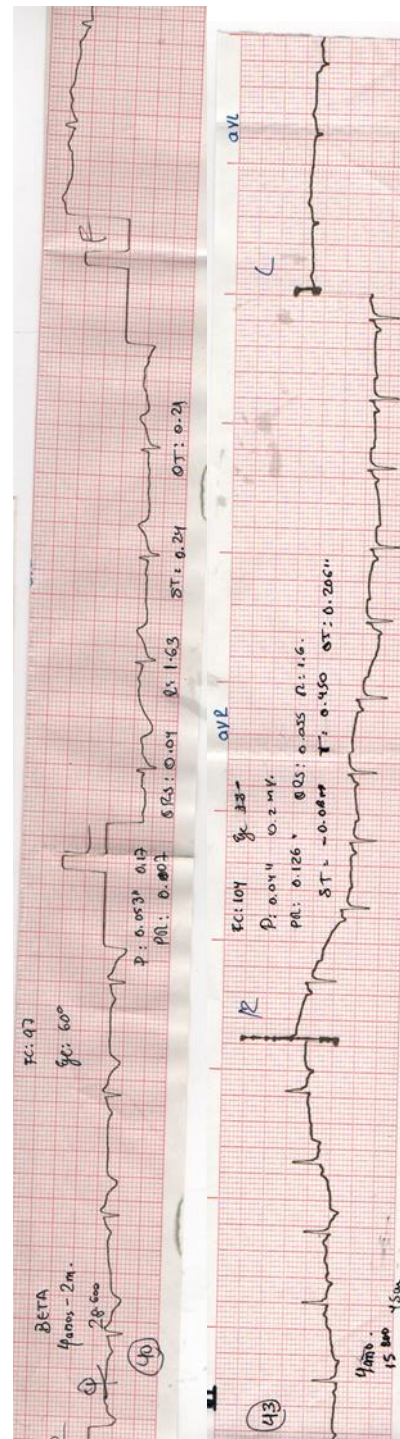 BETA
4 años - 2 m.
28.600
40
FC: 97
Eje: 60°
P: 0.053" 0.17
PR: 0.007
QRS: 0.04 R: 1.63
ST: 0.24 QT: 0.21
43
15 800
R
aVR
FC: 104
P: 0.044 0.2 mV.
PR: 0.126" QRS: 0.055 R: 1.6.
T: 0.450 QT: 0.206"
L
aVL